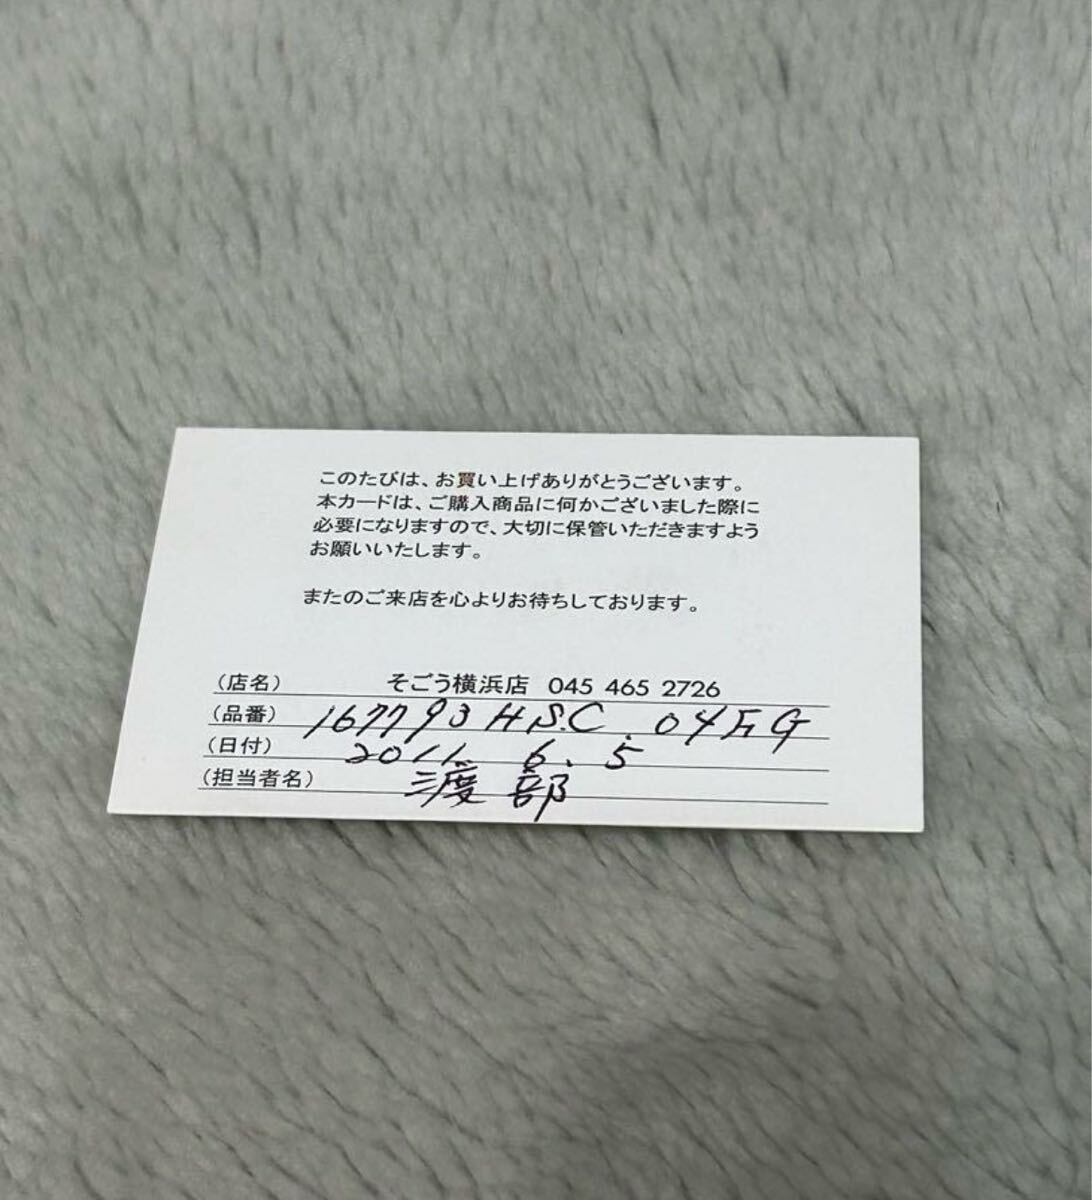 このたびは、お買い上げありがとうございます。
本カードは、ご購入商品に何かございました際に
必要になりますので、大切に保管いただきますよう
お願いいたします。
またのご来店を心よりお待ちしております。
(店名) そごう横浜店 045 465 2726
(品番) 167793 H.S.C. 04 F.G
(日付) 2011. 6. 5
(担当者名) 渡部